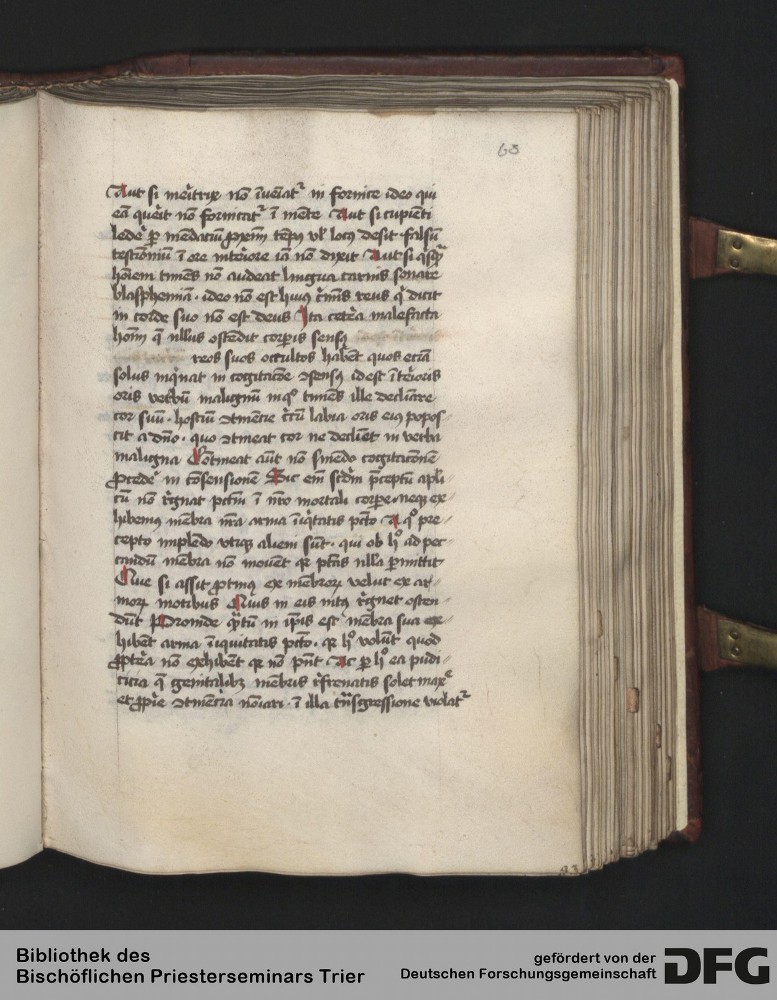 63
Aut si meͥtrix nō īueniatʳ in fornice ideo qui
eā querit nō fornicatʳ ī mente Aut si cupiēti
ledeʳ ꝑ mendaciū ꝓximū tempꝰ ul locꝰ desit falsū
testimoniū ī ore interiore iā nō dixit Aut si qͥsqͣ
hoīem timēs nō audeat lingua carnis sonare
blasphemiā · ideo nō est huiꝰ cͥminis reus qͥ dicit
in corde suo nō est deus Ita cetera malefacta
hoīm q̄ nllus ostēdit corꝑis sensꝰ
reos suos occultos habēt quos eciā
solus inqͥnat in cogitacōne ↄsensꝰ id est īterioris
oris verbū malignū in qͦ timēs ille declinare
cor suū · hostiū ↄtinencie circū labia oris eiꝰ popos⸗
cit a dn̄o · quo ↄtineat cor ne declinēt in verba
maligna Cōtineat aūt nō sinēdo cogitacionē
ꝓcedeʳ in cōsensionē Sic em̄ scd̄m p̄ceptū apl̄i
cū nō regnat pctm̄ ī nr̄o mortali corꝑe · neqꝫ ex⸗
hibemꝰ mēbra nr̄a arma īiqͥtatis pctō A qͦ pre⸗
cepto implēdo utiqꝫ alieni sūt · qui ob hͦ ad pec
candū mēbra nō mouēt qꝛ ptās nlla ꝑmittit
Que si assit ꝓtinꝰ ex mēbroꝝ velut ex ar⸗
moꝝ motibus Quis in eis intꝰ regnet osten⸗
dūt Proinde qͣntū in ipīs est mēbra sua ex⸗
hibēt arma īiquitatis pctō · qꝛ hͦ volūt quod
ꝓpterea nō exhibēt qꝛ nō pn̄t Ac ꝑ hͦ ea pudi⸗
cicia q̄ genitalibꝫ mēbris refrenatis solet maxᵉ
et ꝓpͥe ↄtinēcia noīari · ī illa trāsgressione violatʳ
Bibliothek des
Bischöflichen Priesterseminars Trier
gefördert von der
Deutschen Forschungsgemeinschaft
DFG